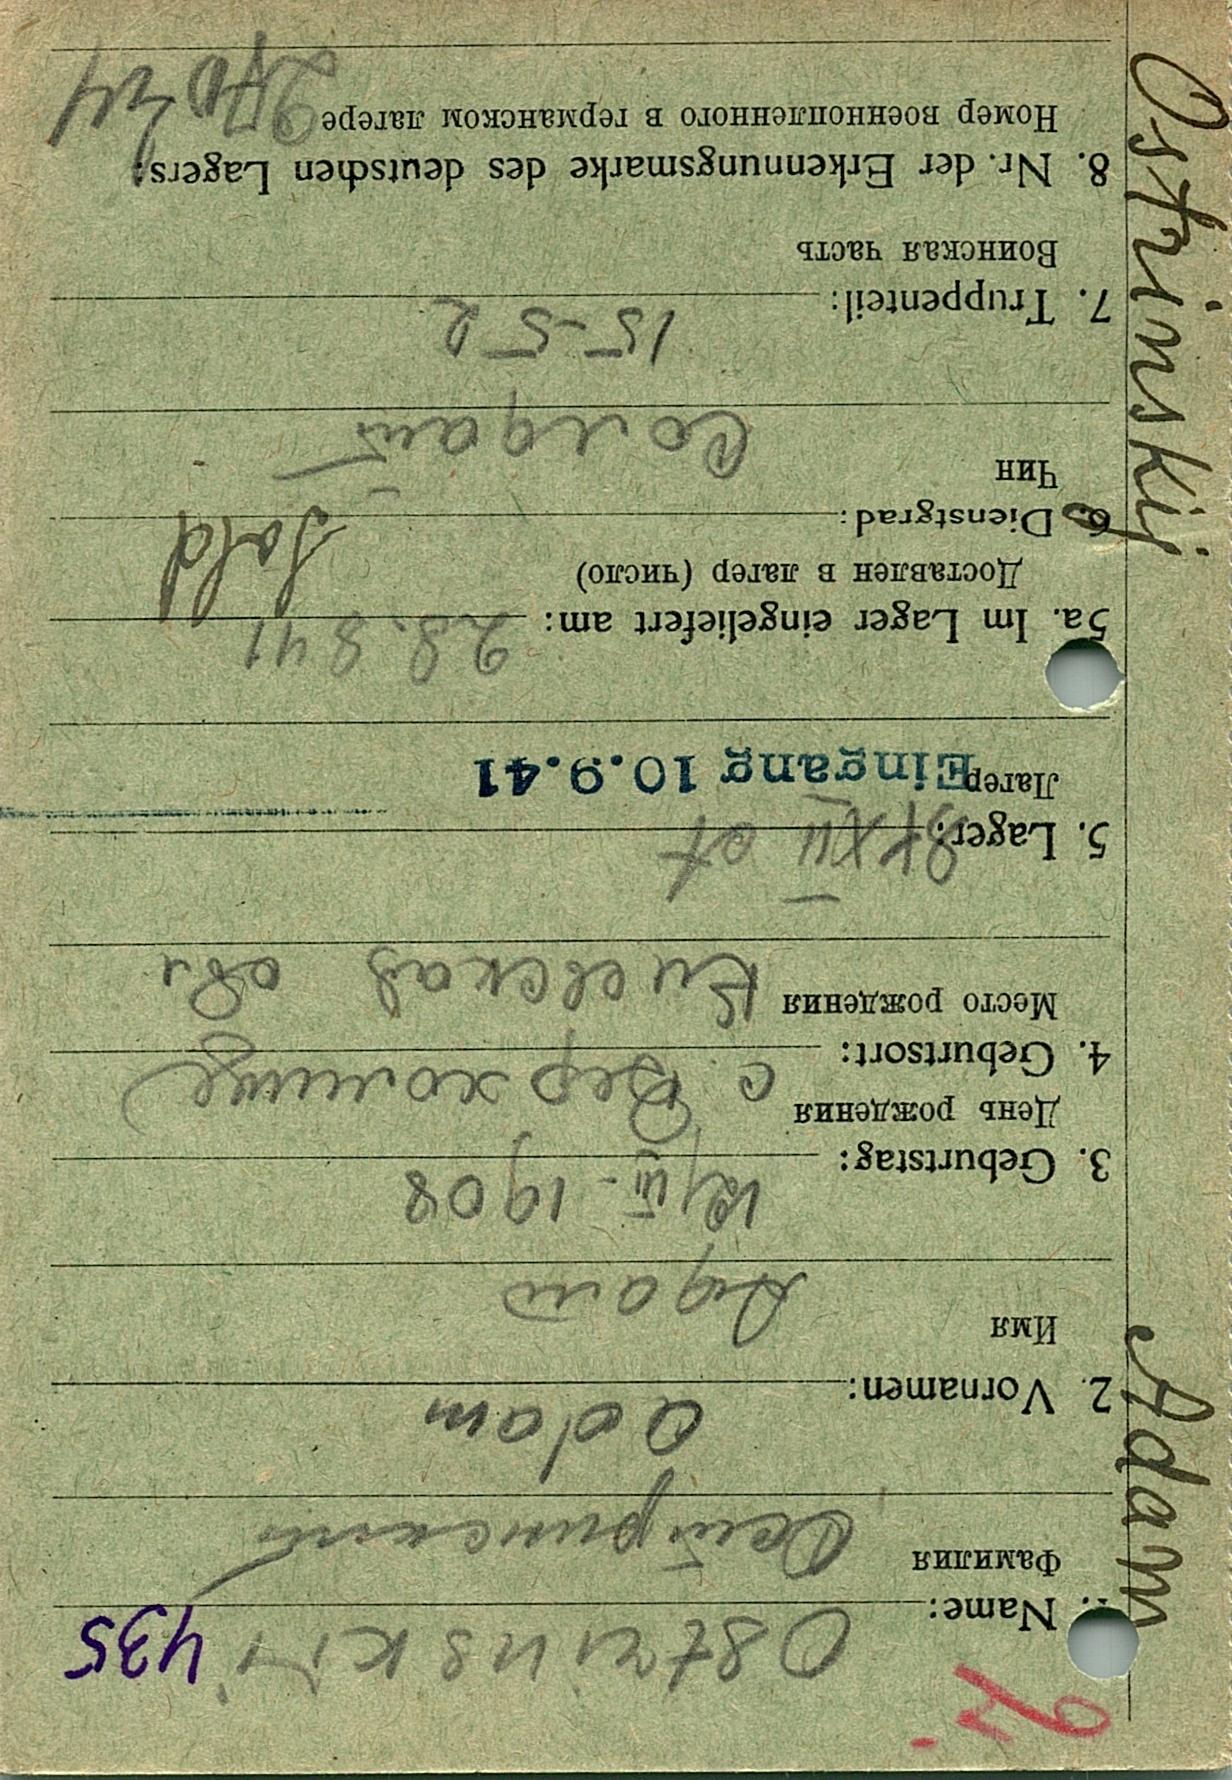 435
1. Name: Ostrinskij
Фамилия Остринский
2. Vornamen: Adam
Имя Адам
3. Geburtstag: 1908
День рождения
4. Geburtsort: с.
Место рождения Киевская обл
5. Lager:
Лагер Eingang 10.9.41
5a. Im Lager eingeliefert am: 28.8 41
Доставлен в лагер (число)
6. Dienstgrad: Sold
Чин Солдат
7. Truppenteil: 15-52
Воинская часть
8. Nr. der Erkennungsmarke des deutschen Lagers:
Номер военнопленного в германском лагере
Ostrinskij Adam